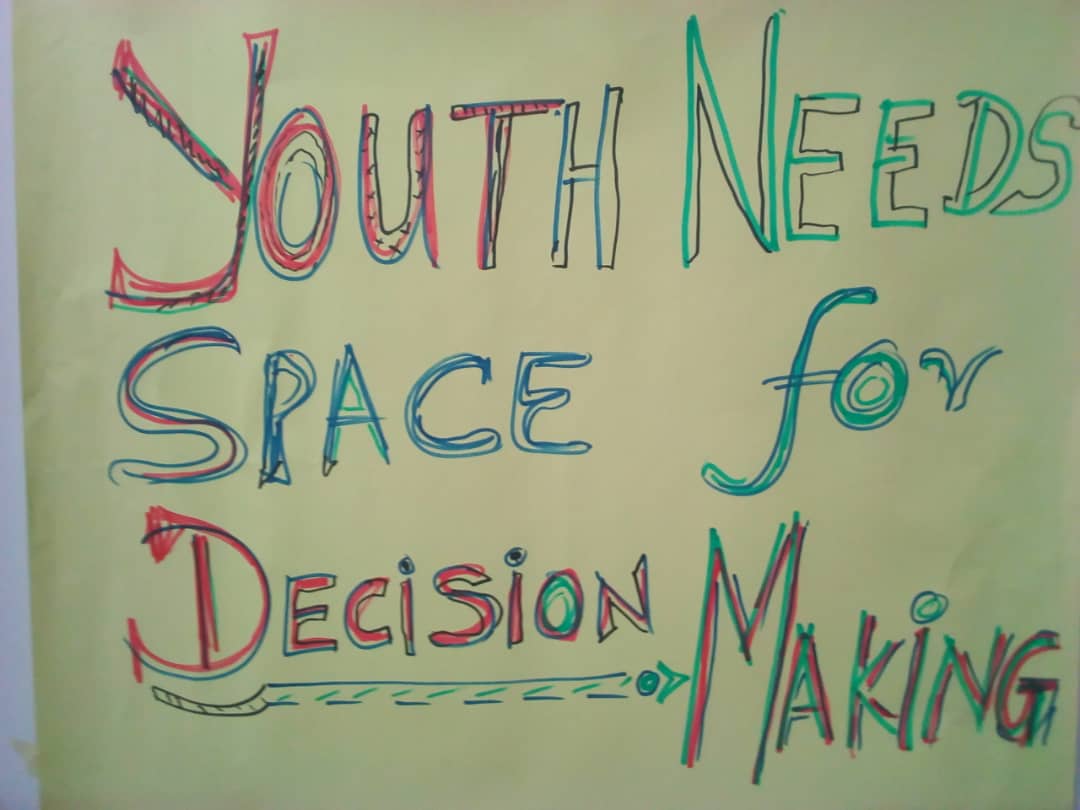 YOUTH NEEDS
SPACE for
DECiSiON MAKiNG